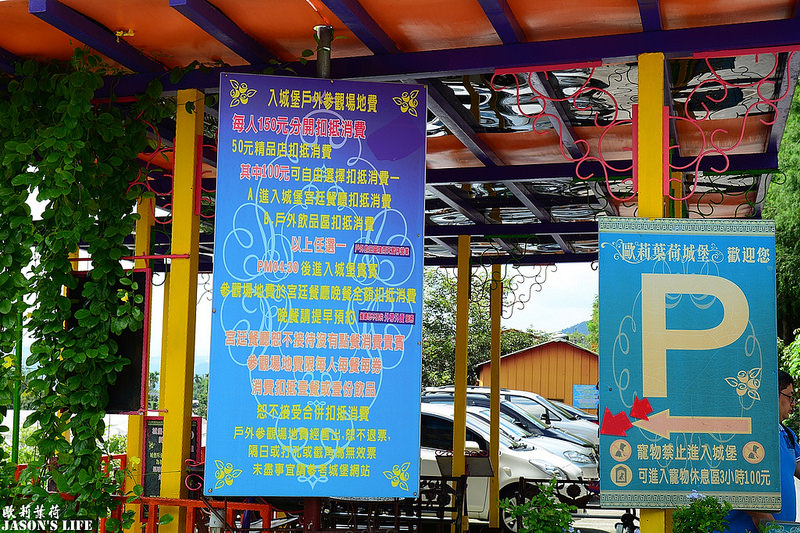 入城堡戶外參觀場地費
每人150元分開扣抵消費
50元精品店扣抵消費
其中100元可自由選擇扣抵消費一
A 進入城堡宮廷餐廳扣抵消費
B.戶外飲品區扣抵消費
以上任選一
PM04:30後進入城堡貴賓
參觀場地費於宮廷餐廳晚餐全額扣抵消費
晚餐請提早預訂
宮廷餐廳部不接待有點餐消費貴賓
參觀場地費限每人每餐每券
消費扣抵壹餐或壹份飲品
恕不接受合併扣抵消費
戶外參觀場地費經售出,恕不退票,
隔日或打元或截角為無效票
未盡事宜請參考城堡網站
歐莉葉荷城堡 歡迎您
P
寵物禁止進入城堡
可進入寵物休息區3小時100元
歐莉葉荷
JASON'S LIFE